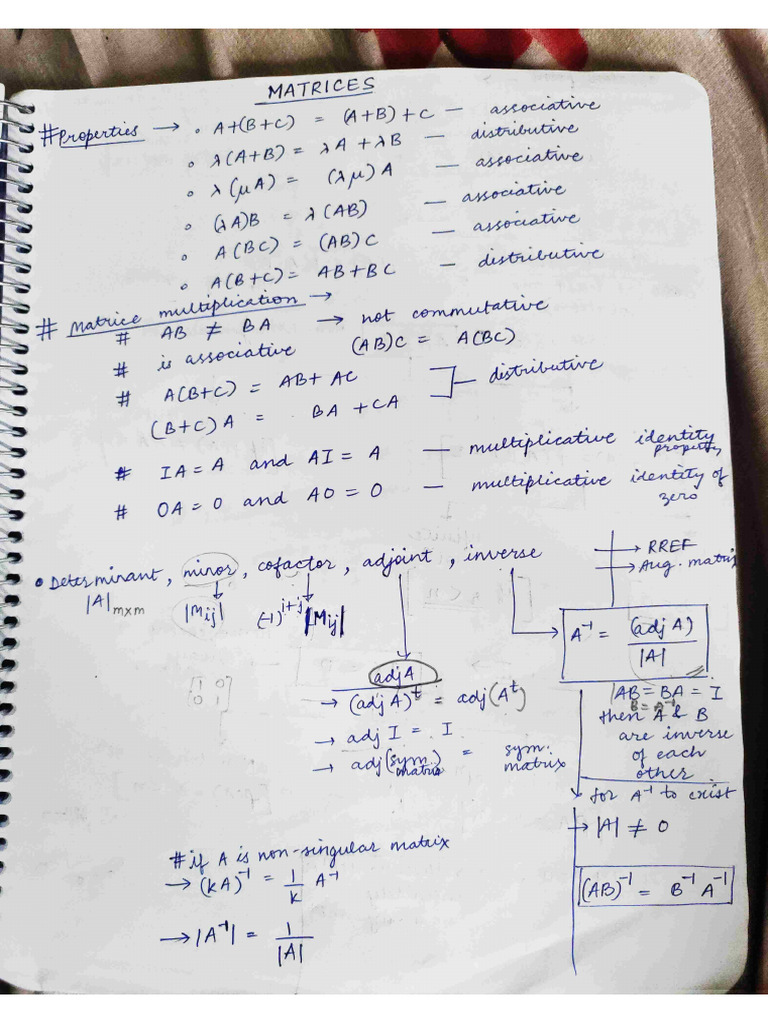 MATRICES
# Properties → • A+(B+C) = (A+B)+C — associative
• λ(A+B) = λA + λB — distributive
• λ(μA) = (λμ)A — associative
• (λA)B = λ(AB) — associative
• A(BC) = (AB)C — associative
• A(B+C) = AB+BC — distributive
# Matrice multiplication →
# AB ≠ BA → not commutative
# is associative (AB)C = A(BC)
# A(B+C) = AB + AC
(B+C)A = BA + CA — distributive
# IA = A and AI = A — multiplicative identity property
# OA = O and AO = O — multiplicative identity of zero
• Determinant, minor, cofactor, adjoint, inverse
|A|m×m
|Mij|
(-1)^i+j |Mij|
→ RREF
→ Aug. matrix
A⁻¹ = (adj A) / |A|
adjA
→ (adj A)^t = adj(A^t)
→ adj I = I
→ adj(sym. matrix) = sym. matrix
AB = BA = I
B = A⁻¹
then A & B
are inverse
of each
other
for A⁻¹ to exist
→ |A| ≠ 0
(AB)⁻¹ = B⁻¹ A⁻¹
# if A is non-singular matrix
→ (kA)⁻¹ = 1/k A⁻¹
→ |A⁻¹| = 1/|A|